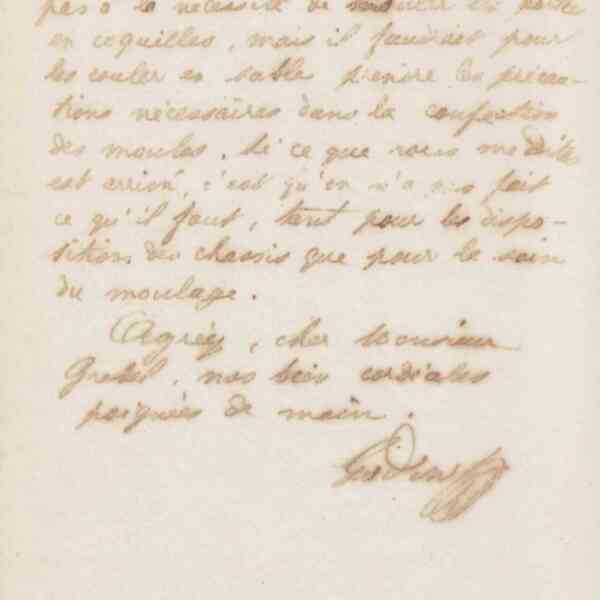 pas à la nécessité de mouler les
en coquilles, mais il faudrait pour
les couler en sable prendre les précau-
tions nécessaires dans la confection
des moules. Si ce que vous me dites
est arrivé, c'est qu'on n'a pas fait
ce qu'il faut, tant pour les dispo-
sitions des chassis que pour le soin
du moulage.
Agréez, cher Monsieur
nos bien cordiales
poignées de main.
Godin